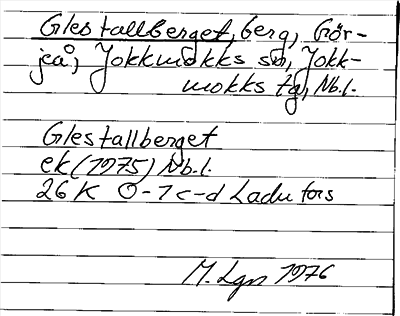 Glestallberget, berg, Gör-
jeå, Jokkmokks sn, Jokk-
mokks tg, Nb.l.
Glestallberget
ek (1975) Nb.l.
26 K 0-1 c-d Ladufors
M. Lgn 1976